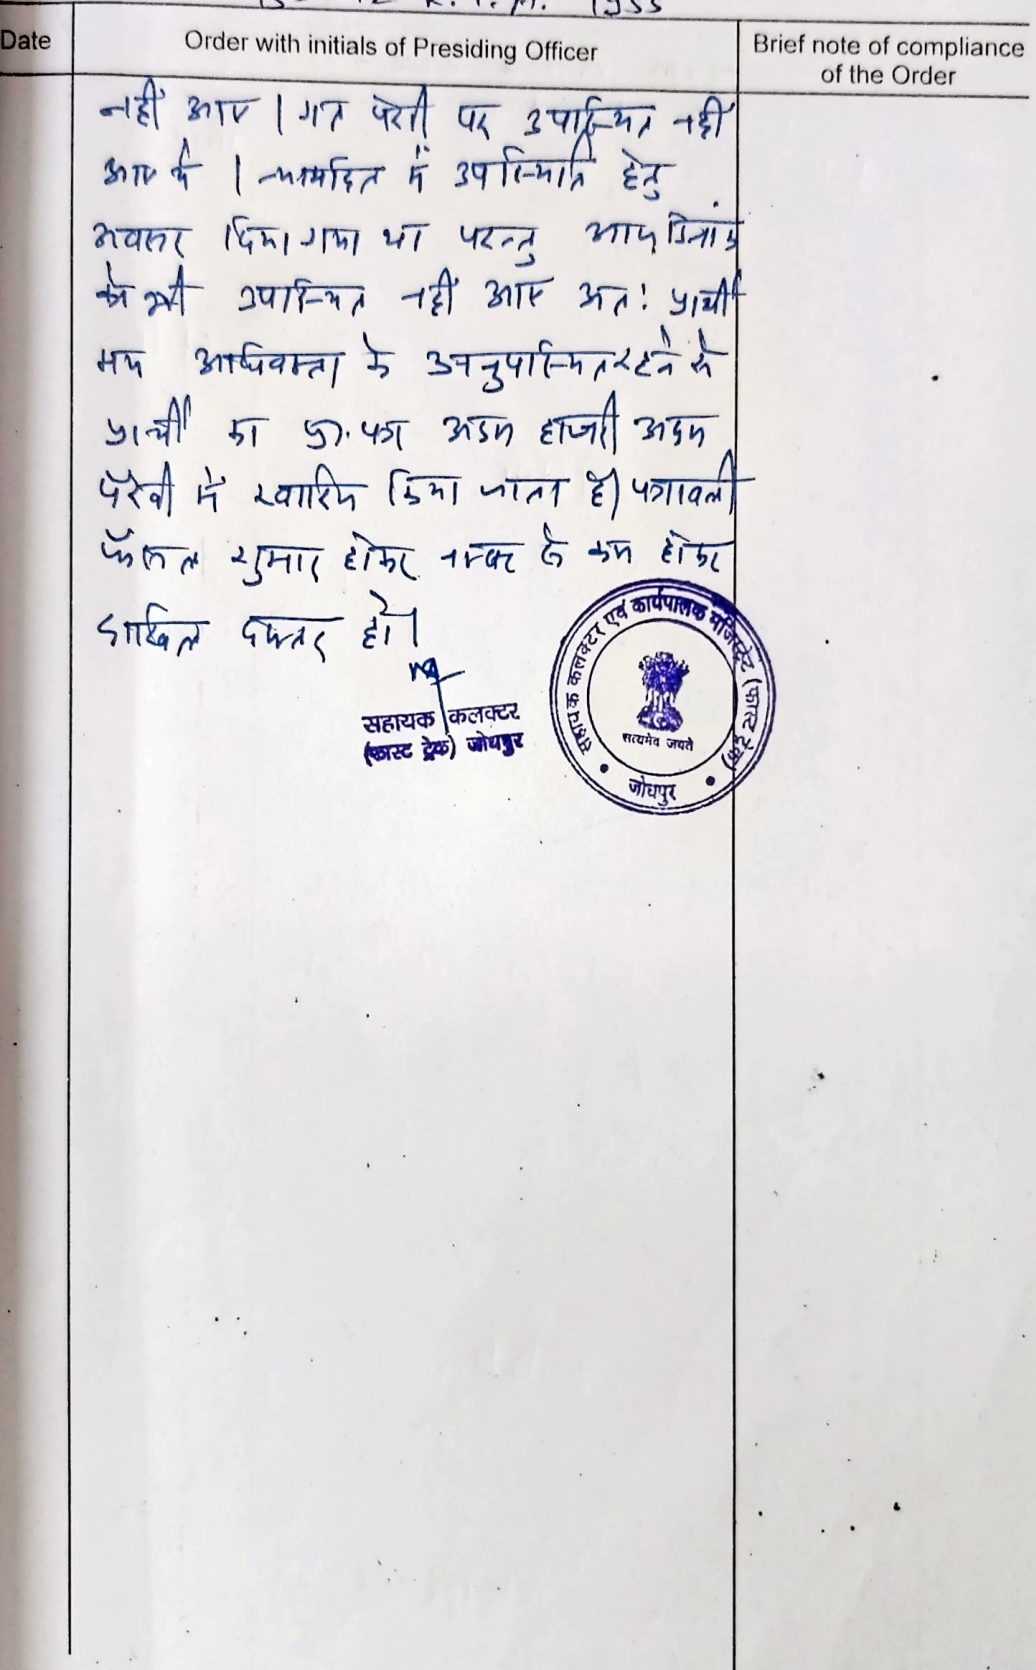 1955
Date
Order with initials of Presiding Officer
Brief note of compliance
of the Order
नहीं आए । गत पेशी पर उपस्थित नहीं
आए थे । न्यायहित में उपस्थिति हेतु
अवसर दिया गया था परन्तु आज दिनांक
को भी उपस्थित नहीं आए अत: प्रार्थी
मय अधिवक्ता के अनुपस्थित रहने से
प्रार्थी का प्रा. पत्र अदम हाजरी अदम
पैरवी में खारिज किया जाता है। पत्रावली
फैसल शुमार होकर नम्बर से कम होकर
दाखिल दफ्तर हो।
सहायक कलक्टर
(फास्ट ट्रेक) जोधपुर
सहायक कलक्टर एवं कार्यपालक मजिस्ट्रेट (फास्ट ट्रेक)
सत्यमेव जयते
जोधपुर